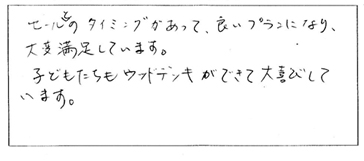 セールのタイミングがあって、良いプランになり、
大変満足しています。
子どもたちもウッドデッキができて大喜びして
います。